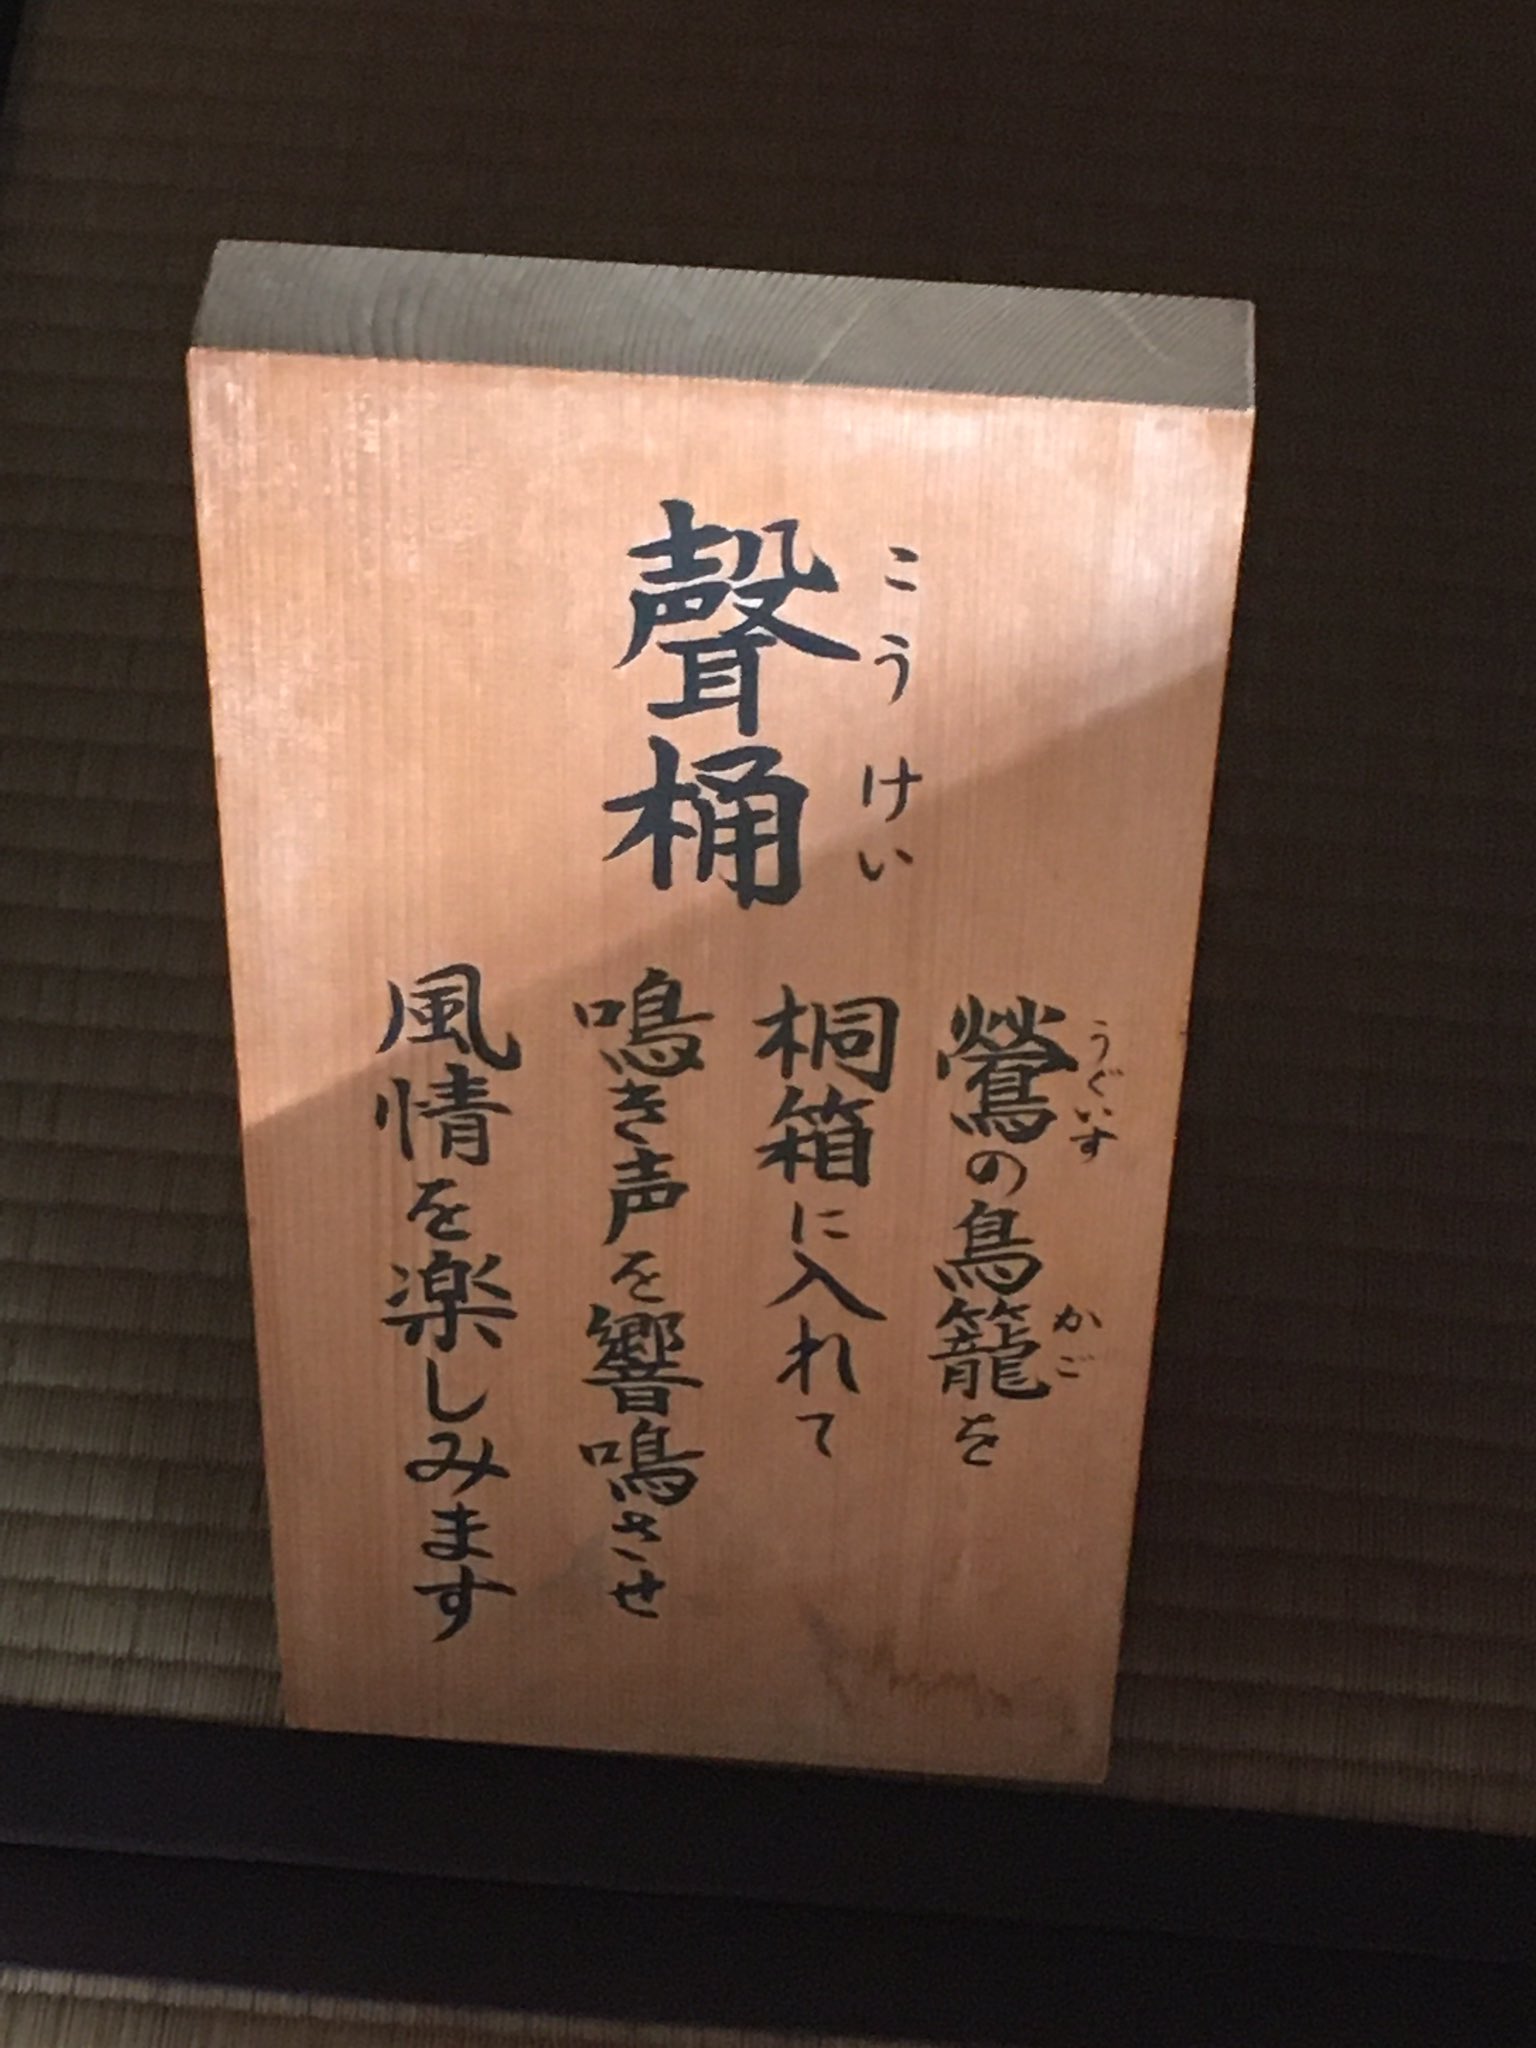 聲桶
こうけい
鶯の鳥籠を
うぐいす
かご
桐箱に入れて
鳴き声を響鳴させ
風情を楽しみます